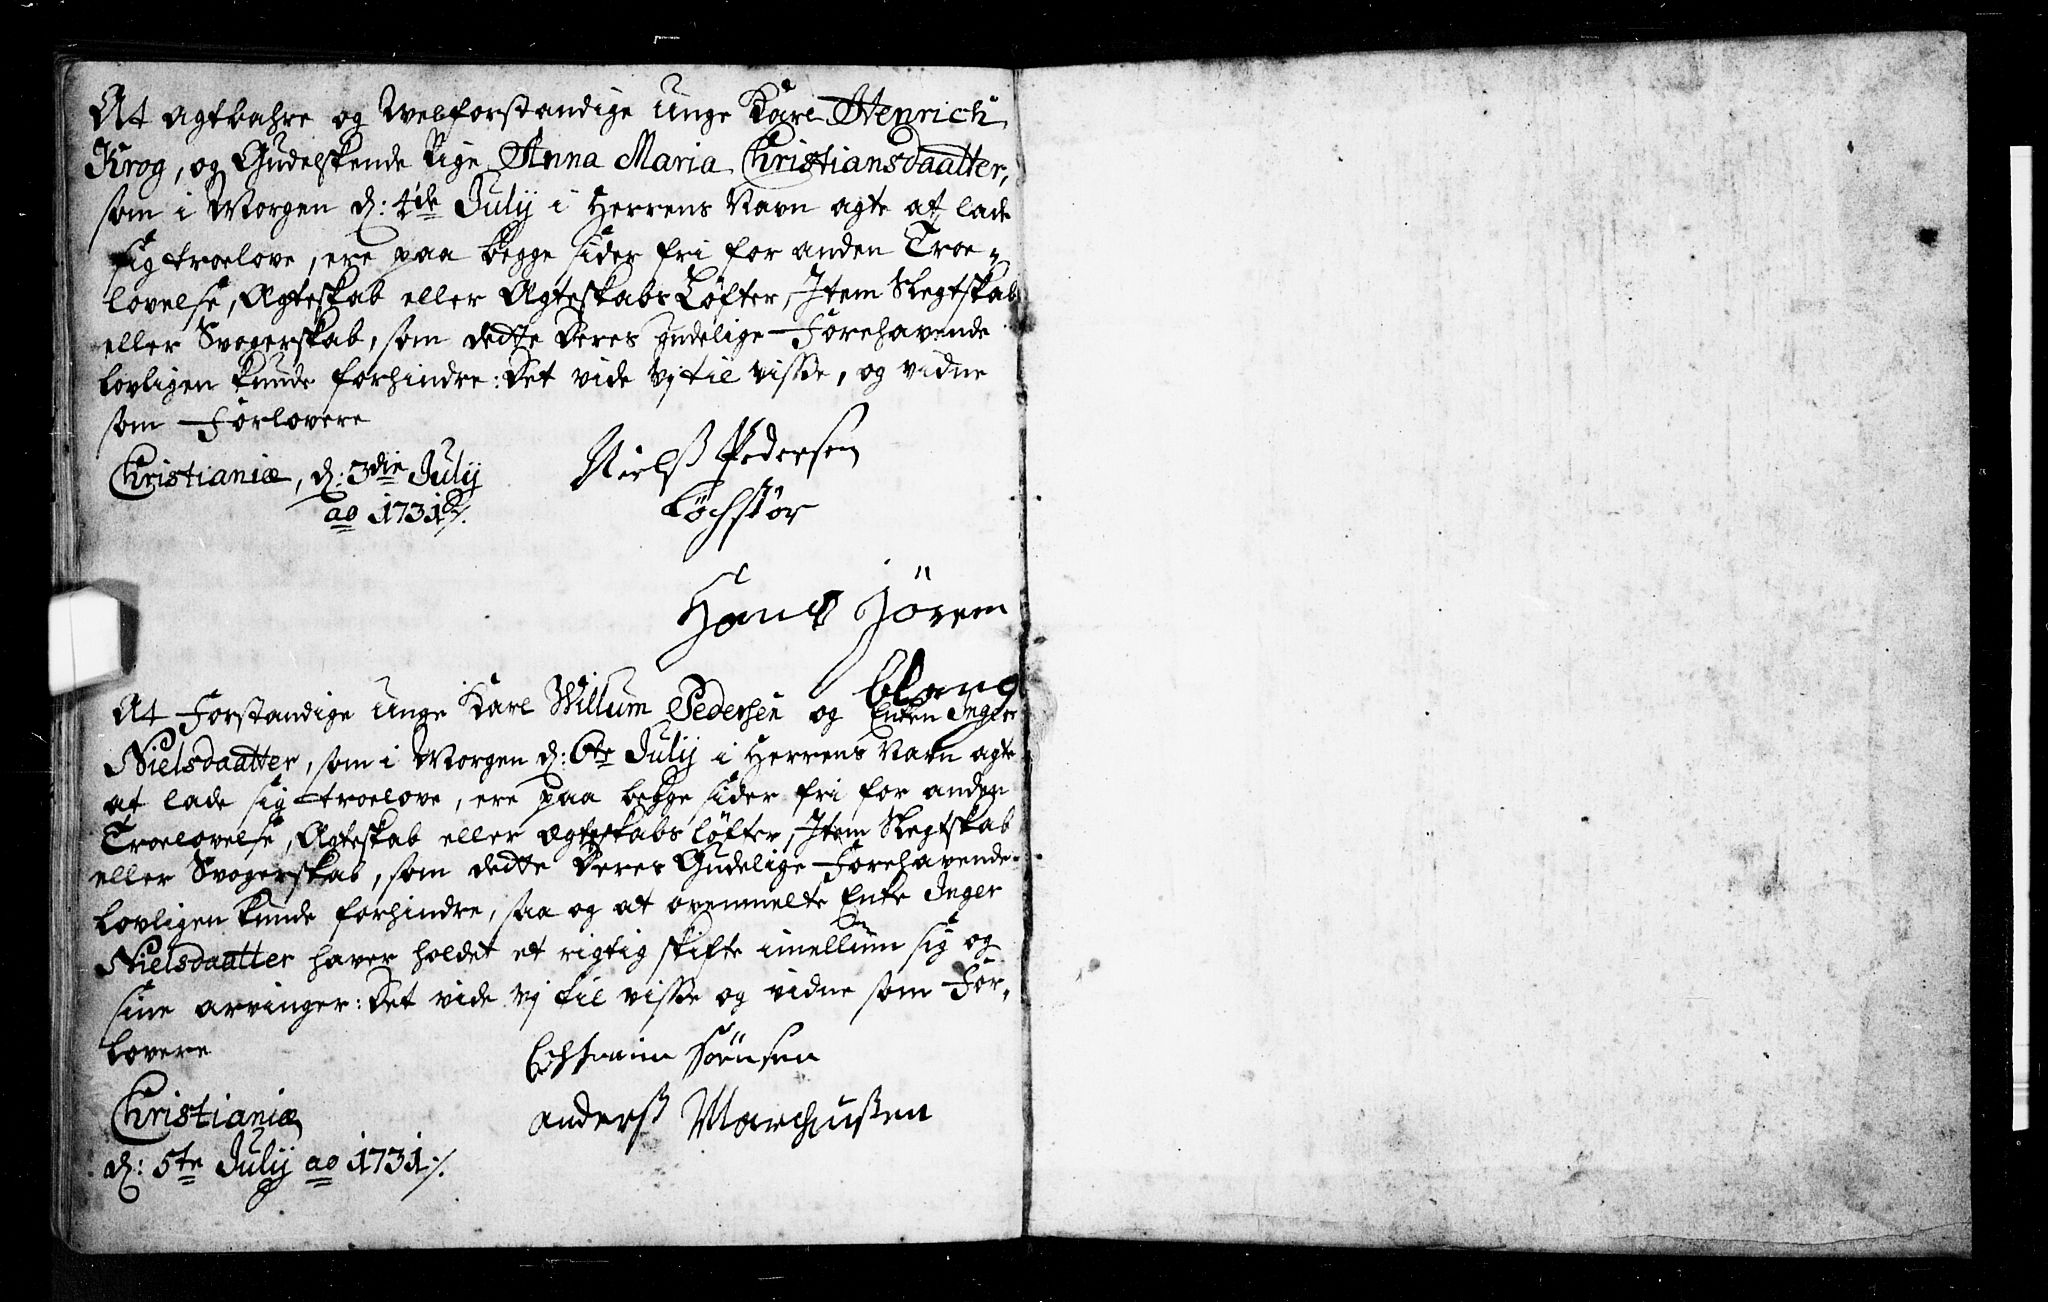 At Agtbahre og Velforstandige Unge Karl Henrich
Krog, og Gudelskende Pige Anna Maria Christiansdaatter,
som i Morgen d: 4de Julij i Herrens Navn agte at lade
sig troelove, ere paa begge sider fri for anden Troe-
lovelse, Ægteskab eller Ægteskabs Løfter, Item Slegtskab
eller Svogerskab, som dette deres gudelige Forehavende
lovligen kunde forhindre: Det vide vj til visse, og vidne
som Forlovere
Christianiæ, d: 3die Julij
ao 1731
Nielß Pedersen
Løchstør
Hans Jören
At Forstandige Unge Karl Willum Pedersen og Enken Inger
Nielsdaatter, som i Morgen d: 6te Julij i Herrens Navn agte
at lade sig troelove, ere paa begge sider fri for anden
Troelovelse, Ægteskab eller Ægteskabs løfter, Item Slegtskab
eller Svogerskab, som dette deres Gudelige Forehavende
lovligen kunde forhindre, saa og at ovenmelte Enke Inger
Nielsdaatter haver holdet et rigtig skifte imellum sig og
sine arvinger: Det vide vj til visse og vidne som For-
lovere
Sörensen
anderß Marchußen
Christianiæ
d: 5te Julij ao 1731